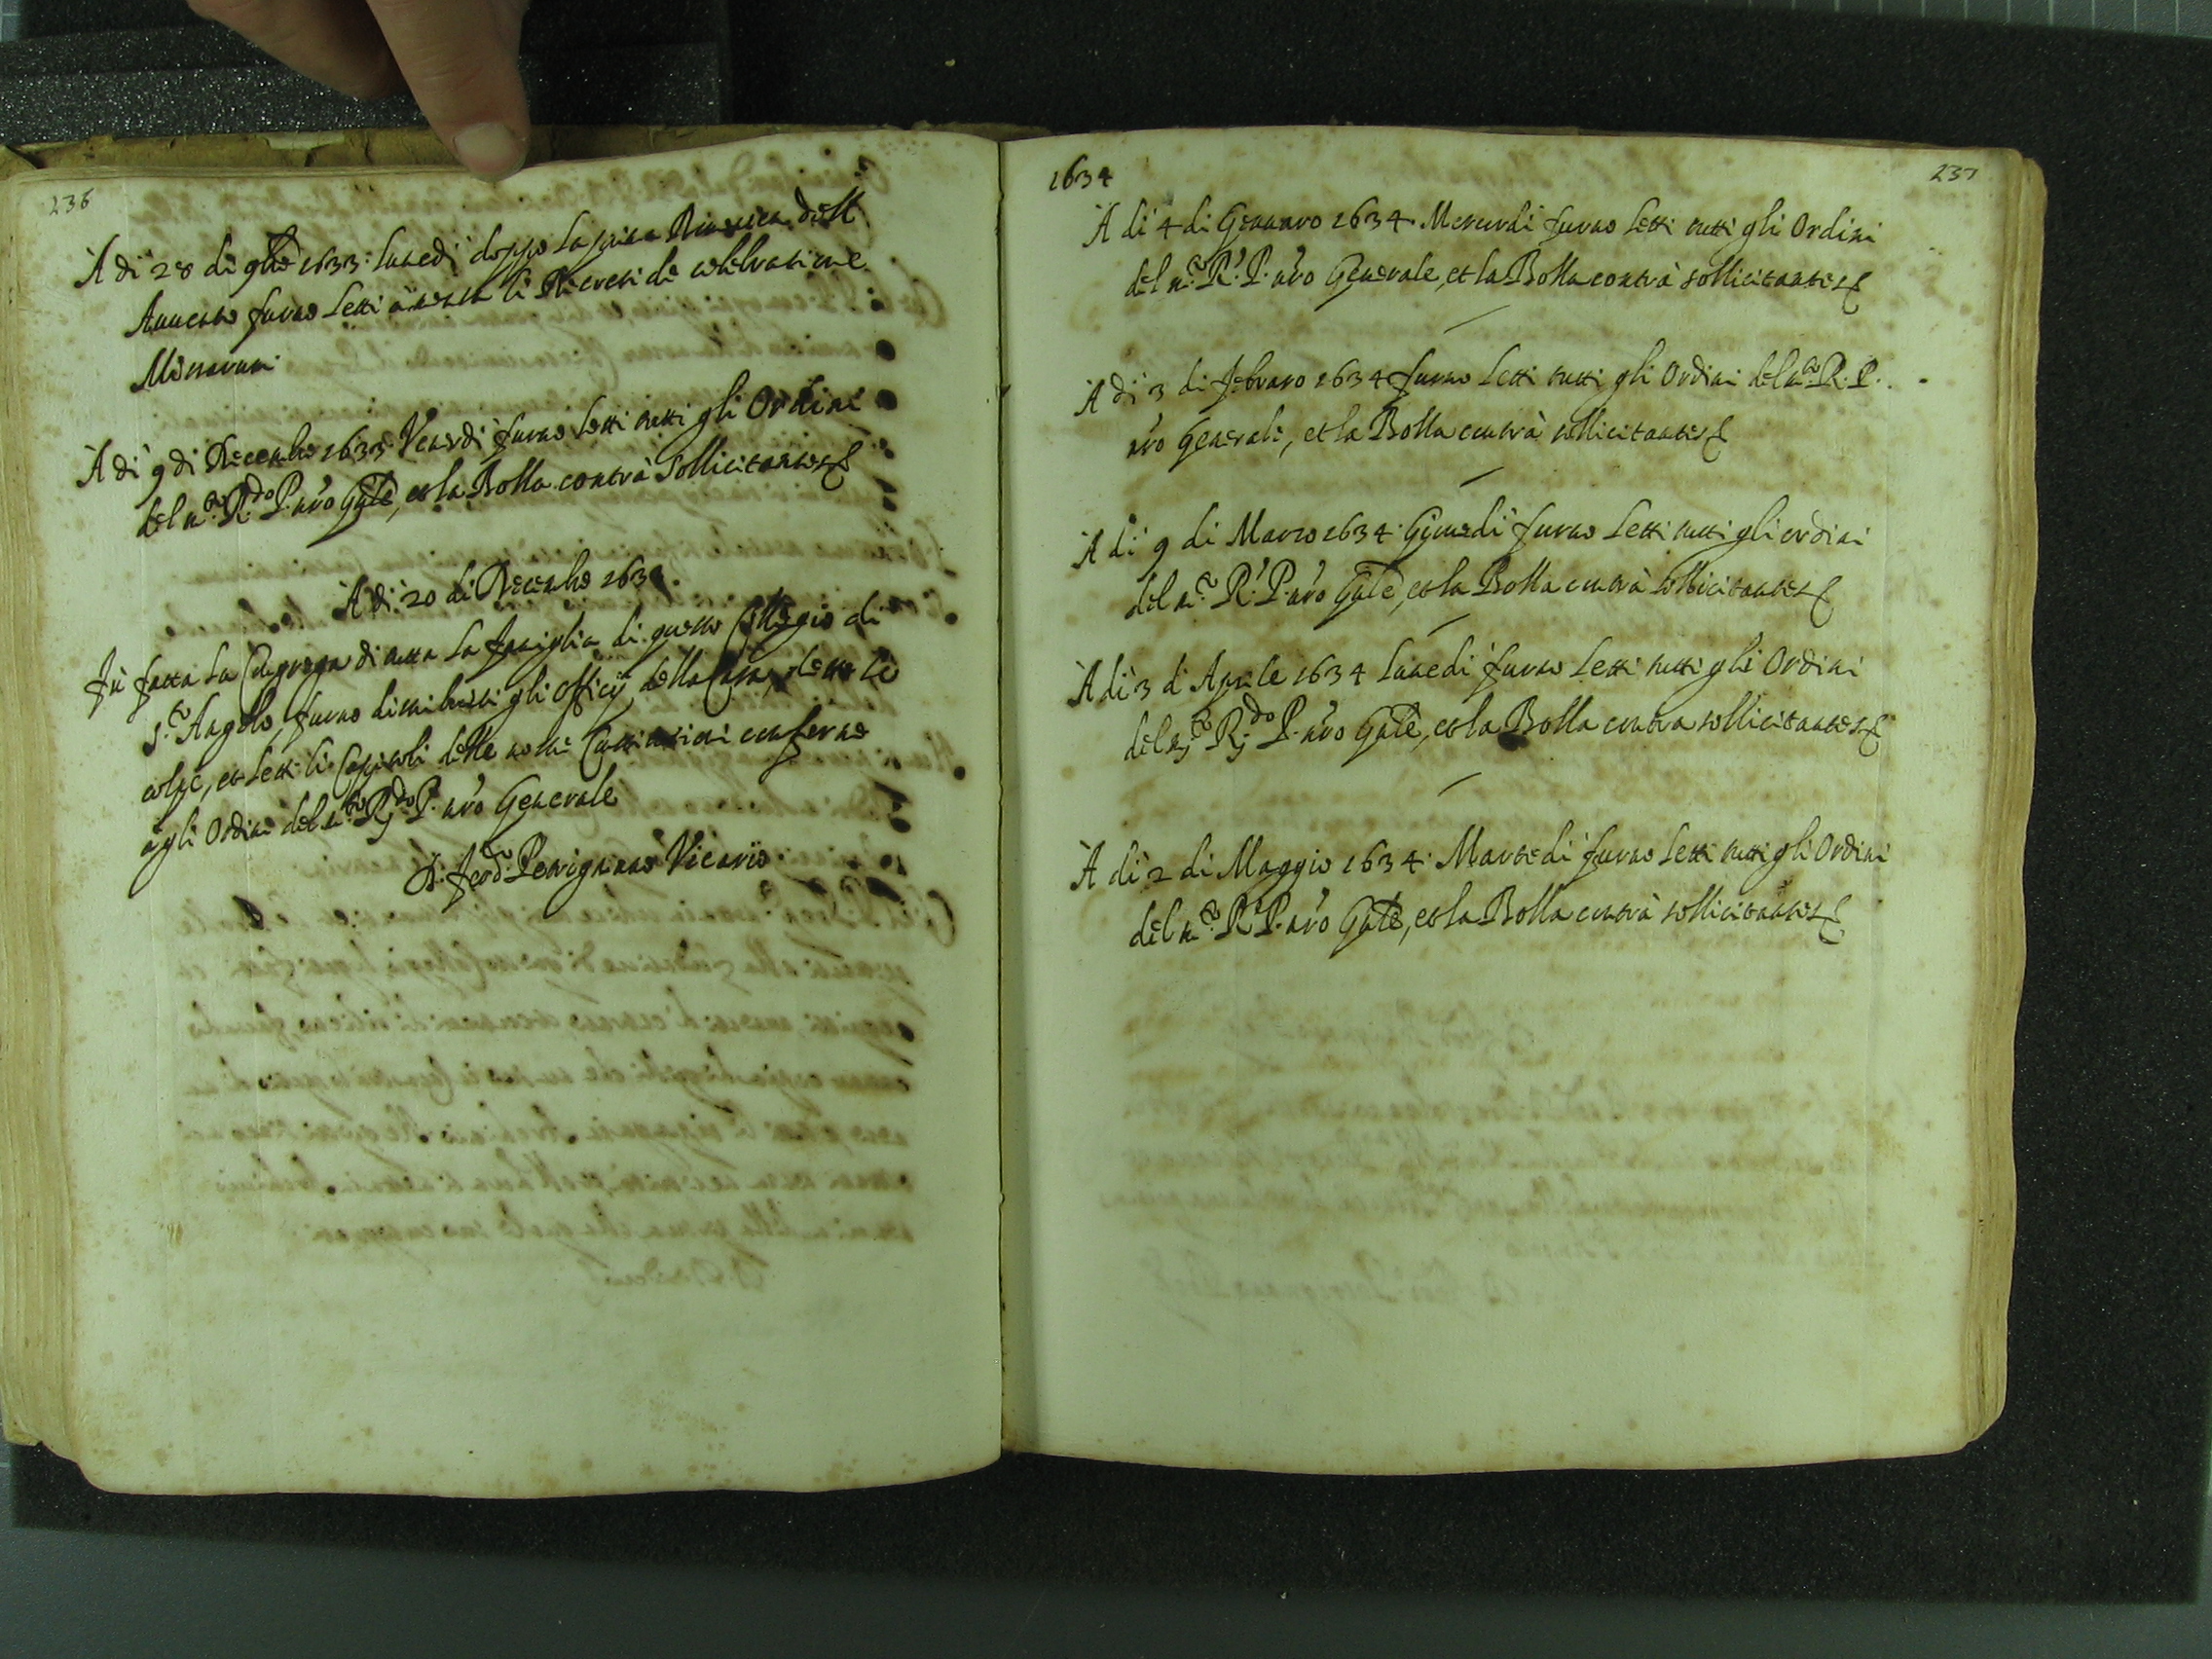 236
A dì 28 di 9bre 1633. Lunedì doppo la prima Domenica dell
Avuento furno Letti à mensa li Decreti de celebratione
Missarum
A dì 9 di Decembre 1633. Venerdì furno letti tutti gli Ordini
del m.to R.do P. nro Gnle, et la Bolla contrà Sollicitantes
A dì 20 di Decembre 163
Fù fatta la Congrega di tutta la famiglia di questo Collegio di
S.to Angelo, furno distribuiti gli officij della Casa, dette le
colpe, et letti li Capitoli delle nostre Constitutioni conforme
agli Ordini del m.to R.do P. nro Generale
D. Ferd.do Perignano Vicario
1634
237
A dì 4 di Gennaro 1634. Mercordì furno letti tutti gli Ordini
del m.to R. P. nro Generale, et la Bolla contrà sollicitantes
A dì 3 di Febraro 1634 furno Letti tutti gli Ordini del m.to R. P.
nro Generale, et la Bolla contrà sollicitantes
A dì 9 di Marzo 1634. Giovedì furno Letti tutti gli ordini
del m.to R. P. nro Gnle, et la Bolla contrà sollicitantes
A dì 3 d Aprile 1634 Lunedì furno Letti tutti gli Ordini
del m.to R.do P. nro Gnle, et la Bolla contra sollicitantes
A dì 2 di Maggio 1634. Martedì furno Letti tutti gli Ordini
del m.to R. P. nro Gnle, et la Bolla contrà sollicitantes